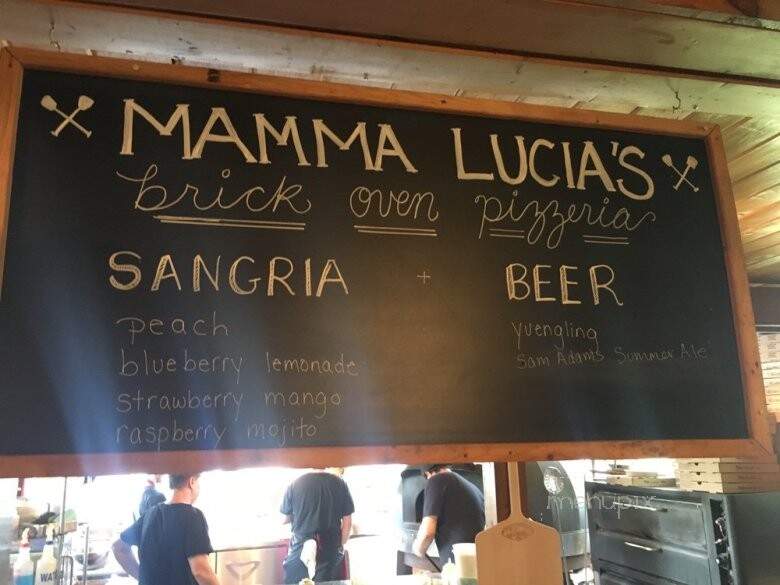 MAMMA LUCIA'S
brick oven pizzeria
SANGRIA + BEER
peach
blueberry lemonade
strawberry mango
raspberry mojito
yuengling
Sam Adams Summer Ale
menupix
WAT